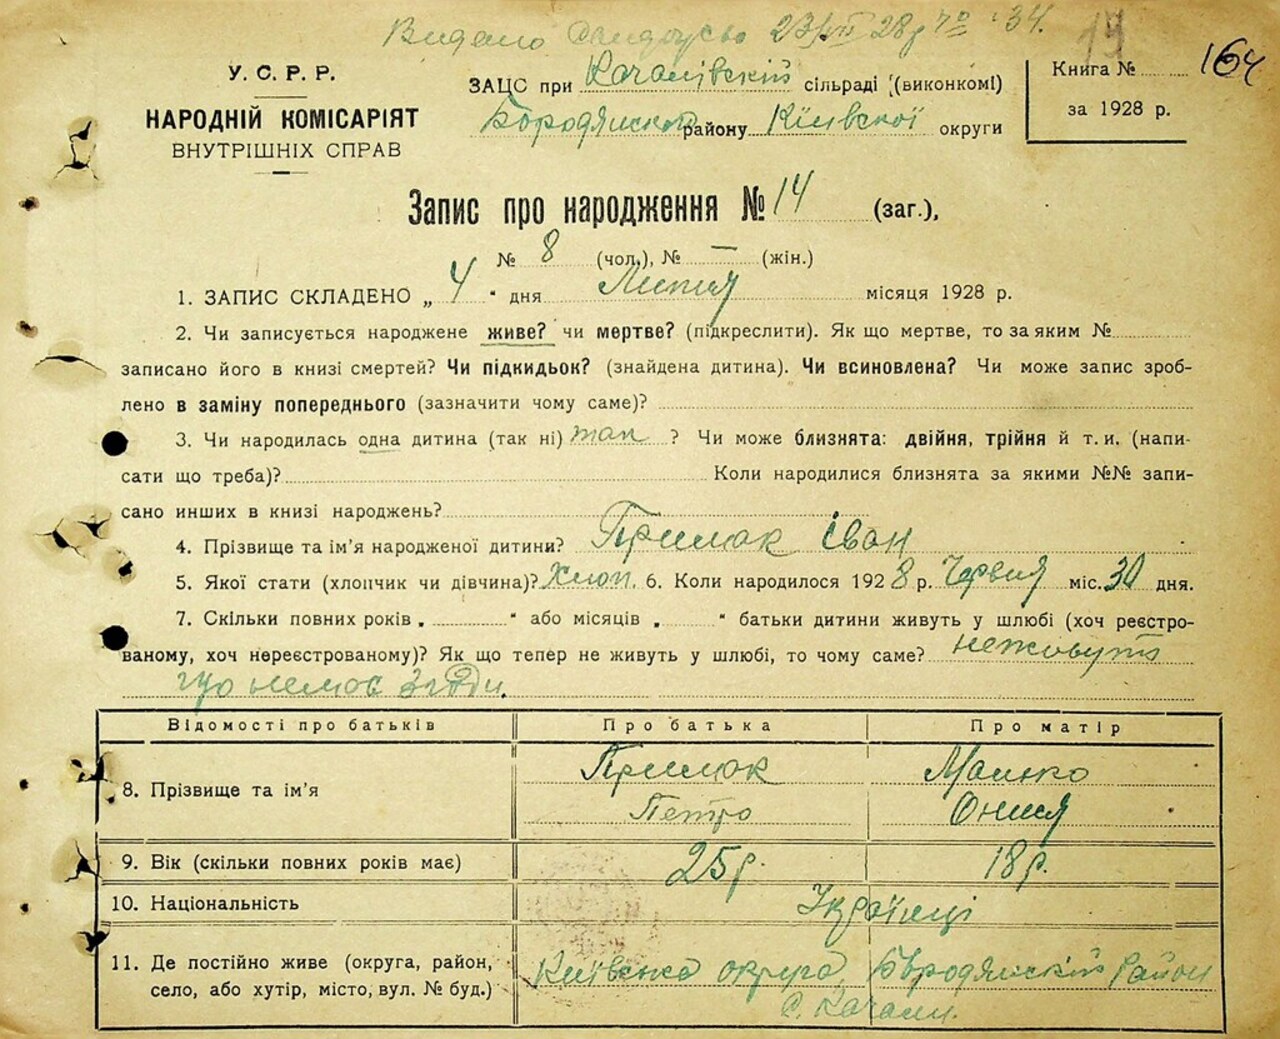 Видано 23/VII 28р. 34.
У. С. Р. Р.
НАРОДНІЙ КОМІСАРІЯТ
ВНУТРІШНІХ СПРАВ
ЗАЦС при Качалівскій сільраді (виконкомі)
Бородянском району Київської округи
Книга № 164
за 1928 р.
Запис про народження № 14 (заг.),
№ 8 (чол.), № — (жін.)
1. ЗАПИС СКЛАДЕНО „ 4 " дня Липня місяця 1928 р.
2. Чи записується народжене живе? чи мертве? (підкреслити). Як що мертве, то за яким №
записано його в книзі смертей? Чи підкидьок? (знайдена дитина). Чи всиновлена? Чи може запис зроб-
лено в заміну попереднього (зазначити чому саме)?
3. Чи народилась одна дитина (так ні) так ? Чи може близнята: двійня, трійня й т. и. (напи-
сати що треба)? Коли народилися близнята за якими №№ запи-
сано инших в книзі народжень?
4. Прізвище та ім'я народженої дитини? Примак Іван
5. Якої стати (хлопчик чи дівчина)? Хлоп. 6. Коли народилося 1928 р. Червня міс. 30 дня.
7. Скільки повних років „ " або місяців „ " батьки дитини живуть у шлюбі (хоч реєстро-
ваному, хоч нереєстрованому)? Як що тепер не живуть у шлюбі, то чому саме? неживуть
що немає згоди.
Відомості про батьків Про батька Про матір
8. Прізвище та ім'я Примак Петро Малько
9. Вік (скільки повних років має) 25р. 18р.
10. Національність Українці
11. Де постійно живе (округа, район,
село, або хутір, місто, вул. № буд.) Київська округа Бородянский район
с. Качали.